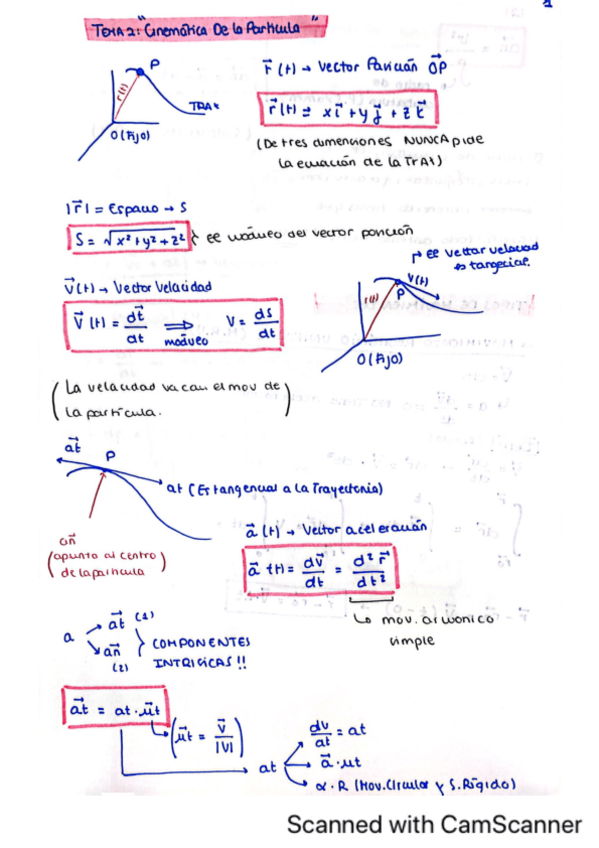 1
TEMA 2: "Cinemática De la Partícula"
P
r(t)
TRAY
O (Fijo)
r⃗ (t) → Vector Posición O⃗P
r⃗ (t) = x i⃗ + y j⃗ + z k⃗
(De tres dimensiones NUNCA pide
la ecuación de la TRAY)
|r⃗| = Espacio → S
S = √x² + y² + z² } EE módulo del vector posición
EE vector velocidad
es tangencial.
V(t)
r(t)
P
O (Fijo)
V⃗(t) → Vector Velocidad
V⃗ (t) = dt⃗/dt ⟹ módulo V = ds/dt
(La velocidad va con el mov de
la partícula.)
a⃗t
P
at (Es tangencial a la Trayectoria)
an⃗
(apunta al centro
de la partícula)
a⃗ (t) → Vector aceleración
a⃗ (t) = dv⃗/dt = d² r⃗/dt²
↳ mov. armonico
simple
a → a⃗t (1)
→ a⃗n (2)
} COMPONENTES
INTRISICAS !!
a⃗t = at · u⃗t
(u⃗t = V⃗/|V|)
at → dv/dt = at
→ a⃗ · ut
→ α · R (Mov. Circular y S. Rígido)
Scanned with CamScanner